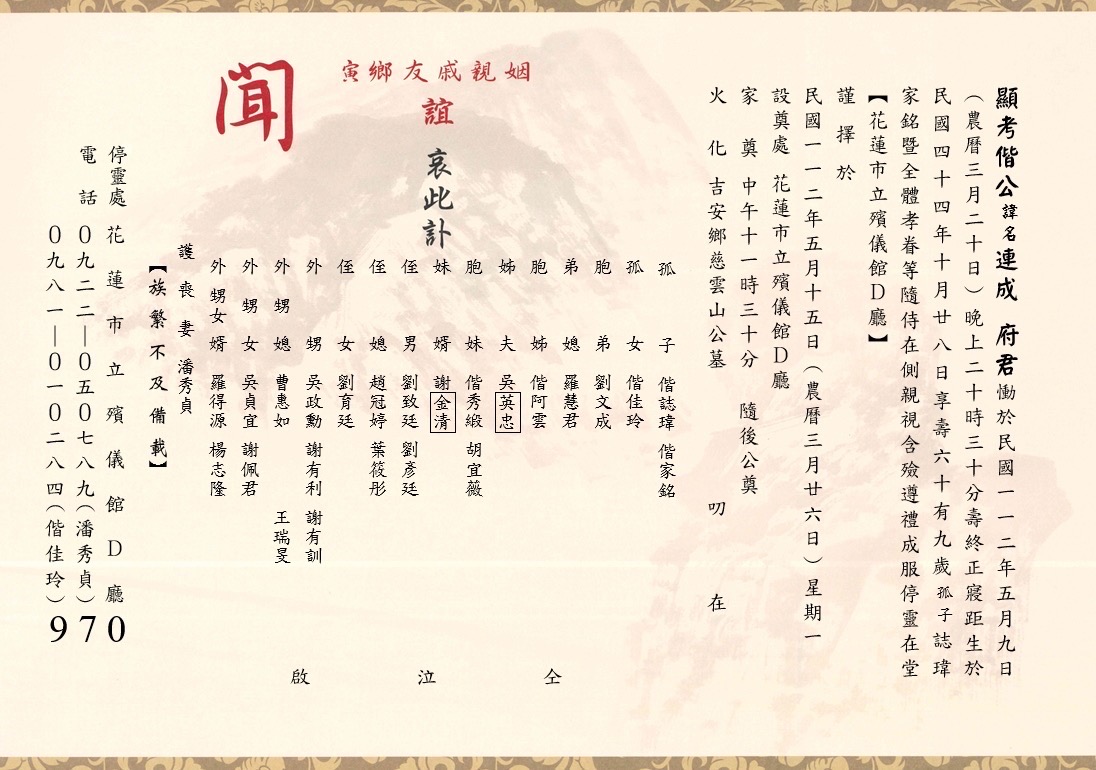 顯考偕公諱名連成　府君慟於民國一一二年五月九日
（農曆三月二十日）晚上二十時三十分壽終正寢距生於
民國四十四年十月廿八日享壽六十有九歲孤子誌瑋
家銘暨全體孝眷等隨侍在側親視含殮遵禮成服停靈在堂
【花蓮市立殯儀館D廳】
謹擇於
民國一一二年五月十五日（農曆三月廿六日）星期一
設奠處　花蓮市立殯儀館D廳
家　奠　中午十一時三十分　隨後公奠
火　化　吉安鄉慈雲山公墓　叨　在
姻親戚友鄉寅
誼
哀此訃
聞
孤　子　偕誌瑋　偕家銘
孤　女　偕佳玲
胞　弟　劉文成
弟　媳　羅慧君
胞　姊　偕阿雲
姊　夫　吳英忠
胞　妹　偕秀緞　胡宜薇
妹　婿　謝金清
侄　男　劉致廷　劉彥廷
侄　媳　趙冠婷　葉筱彤
侄　女　劉育廷
外　甥　吳政勳　謝有利　謝有訓
外甥媳　曹惠如　王瑞旻
外甥女　吳貞宜　謝佩君
外甥女婿　羅得源　楊志隆
護喪妻　潘秀貞
【族繁不及備載】
仝　泣　啟
停靈處　花蓮市立殯儀館D廳
電　話　0922—050789（潘秀貞）
0981—010284（偕佳玲）
970